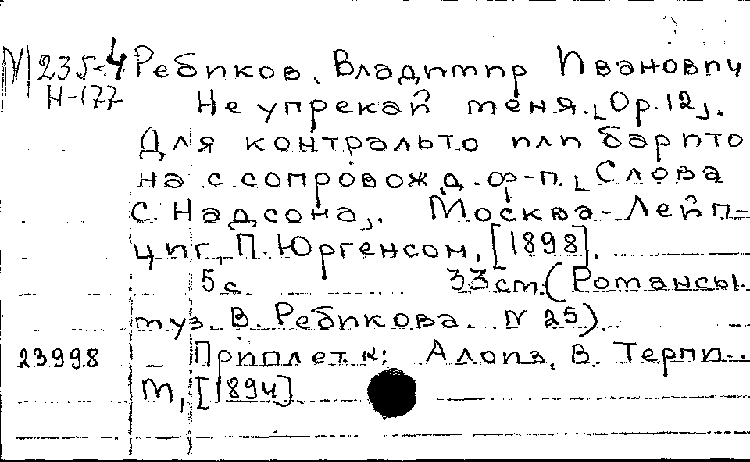 М 235-4 Ребиков, Владимир Иванович
Н-177 Не упрекай меня. [Ор. 12].
Для контральто или барито
на с сопровожд. ф-п. [Слова
С. Надсона]. Москва - Лейп-
циг, П. Юргенсон, [1898].
5 с. 33 см. (Романсы.
муз. В. Ребикова. N 25)
23998 Приплет. к: Алоиз, В. Терпи...
М, [1894]